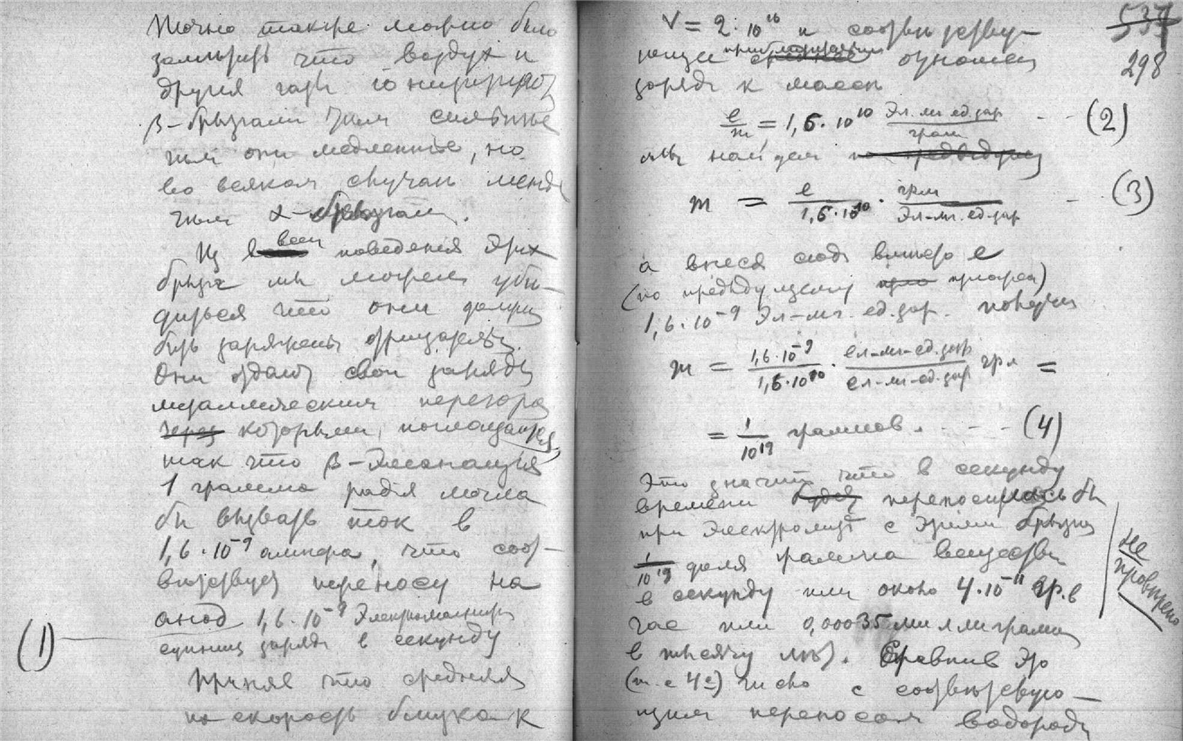 Точно также можно было
заметить что воздух и
другие газы ионизируют
β-брызгами тем сильнее
чем они медленнее, но
во всяком случае менее
чем α-брызгами.
Из всего поведения этих
брызг мы можем убе-
диться что они должны
быть заряжены отрицательн.
Они отдают свои заряды
металлическим перегород
через которыми, поглощаются,
так что β-эманация
1 грамма радия могла
бы вызвать ток в
1,6·10⁻⁹ ампера, что соот-
ветствует переносу на
(1) анод 1,6·10⁻⁹ электромагнит
единиц заряда в секунду
Приняв что средняя
их скорость близка к
537
298
V = 2·10¹⁰ и соответству-
ющее приблизительно отношен
заряда к массе
e/m = 1,6·10¹⁰ Эл.мг.ед.зар/грам - - (2)
мы найдем по предыдущ
m = e/1,6·10¹⁰ · грм/Эл-мг.ед.зар - (3)
а внеся сюда вместо e
(по предыдущему)
1,6·10⁻⁹ Эл-мг.ед.зар. получим
m = 1,6·10⁻⁹/1,6·10¹⁰ · ел-мг-ед.зар/ел-мг-ед.зар грм =
= 1/10¹⁹ граммов. - - - (4)
Это значит что в секунду
времени будет переносилась бы
при электролизе с этими брызгами
1/10¹⁹ доля грамма вещества
в секунду или около 4·10⁻¹¹ гр. в
час или 0,00035 миллиграма
в тысячу лет. Сравнив это
(т.е. 4е) число с соответствую-
щим переносом водорода
не
проверено